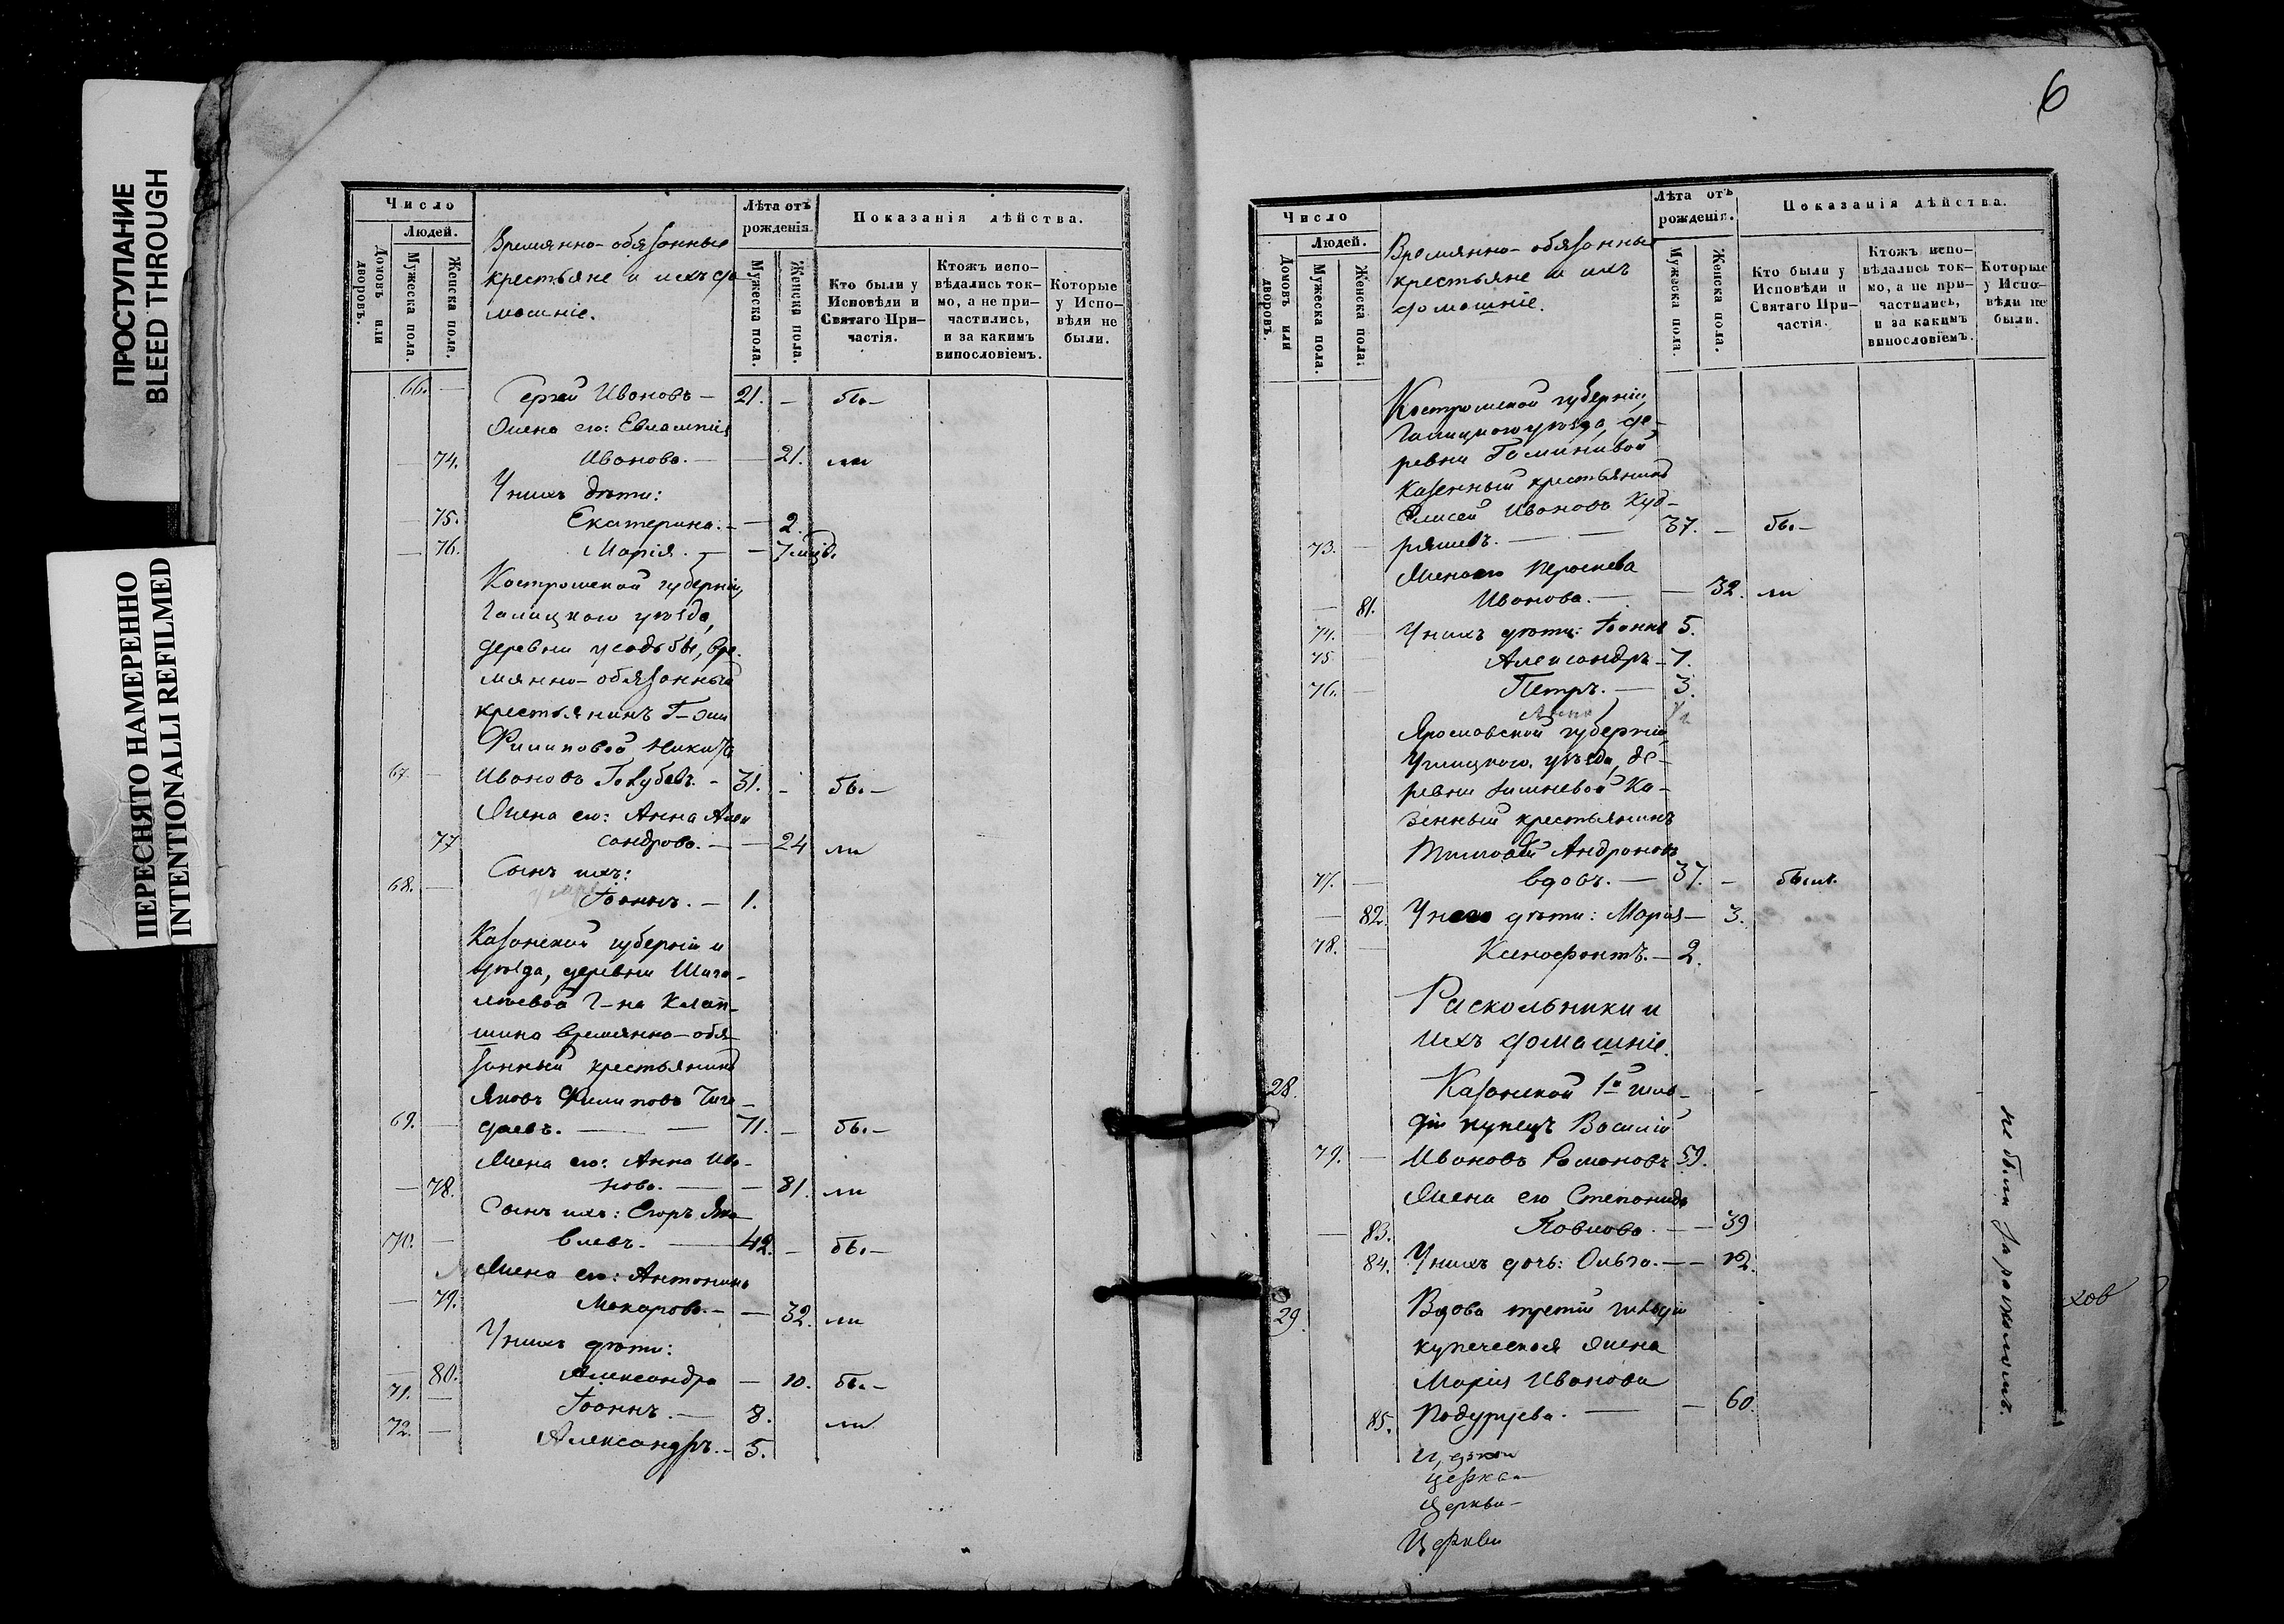 ПРОСТУПАНИЕ
BLEED THROUGH
ПЕРЕСНЯТО НАМЕРЕННО
INTENTIONALLI REFILMED
Число
Людей.
Домовъ или дворовъ.
Мужеска пола.
Женска пола.
Времянно-обязанные
крестьяне и ихъ до
машніе.
Лѣта отъ
рожденія.
Мужеска пола.
Женска пола.
Показанія дѣйства.
Кто были у
Исповѣди и
Святаго При-
частія.
Ктожъ испо-
вѣдались ток-
мо, а не при-
частились,
и за какимъ
винословіемъ.
Которые
у Испо-
вѣди не
были.
66. — Сергѣй Ивановъ — 21. — бы-
Жена его: Евлампія
— 74. Иванова. — — 21. ли
У нихъ дѣти:
— 75. Екатерина. — — 2.
— 76. Марія. — — 7 мѣс.
Костромской губерніи,
Галицкаго уѣзда,
деревни усадьбы, вре-
мянно-обязанный
крестьянинъ Г-жи
Филиповой Никита
67. — Ивановъ Голубевъ. — 31. — бы.—
Жена его: Анна Алек
77 сандрова. — — 24 ли
Сынъ ихъ:
68. — Іоаннъ. — 1.
Казанской губерніи и
уѣзда, деревни Шига-
лѣевой Г-на Клап-
шина времянно-обя-
занный крестьянинъ
Яковъ Филиповъ Чиге-
69. — даевъ. — — 71. — бы.—
Жена его: Анна Ива-
— 78. нова. — — 81. ли
Сынъ ихъ: Егоръ Яко
70. — влевъ. — 42. — бы.—
Жена его: Антонина
— 79. Макарова. — — 32. ли
У нихъ дѣти:
— 80. Александра — 10. бы.—
71. — Іоаннъ. — 8. ли
72. — Александръ. — 5.
6
Число
Людей.
Домовъ или дворовъ.
Мужеска пола.
Женска пола.
Времянно-обязанные
крестьяне и ихъ
домашніе.
Лѣта отъ
рожденія.
Мужеска пола.
Женска пола.
Показанія дѣйства.
Кто были у
Исповѣди и
Святаго При-
частія.
Ктожъ испо-
вѣдались ток-
мо, а не при-
частились,
и за какимъ
винословіемъ.
Которые
у Испо-
вѣди не
были.
Костромской губерніи,
Галицкаго уѣзда, де-
ревни
казенный крестьянинъ
Елисей Ивановъ Куд-
73. — ряшевъ. — — 37. — бы.—
Жена его Параскева
— 81. Иванова. — — 32. ли
74. — У нихъ дѣти: Іоаннъ 5.
75 — Александръ — 7.
76. — Петръ. — 3.
Анна
Ярославской губерніи,
Углицкаго уѣзда, де-
ревни Вишневой ка-
зенный крестьянинъ
Тимоѳей Андроновъ
77. — вдовъ. — 37. — былъ.
— 82. У него дѣти: Марія — 3.
78. — Ксенофонтъ. — 2.
Раскольники и
ихъ домашніе.
28. Казанской 1й гиль-
діи купецъ Василій
79. — Ивановъ Романовъ 59.
Жена его Степанида
— 83. Павлова. — — 39
84. У нихъ дочь: Ольга. — — 12.
29. Вдова третій гильдіи
купеческая жена
Марія Иванова
85. Подуруева. — — 60.
не были за расколомъ.
хов
Церкви
Церкви